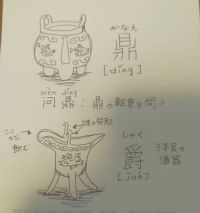 かなえ
鼎
[dǐng]
wèn dǐng
问鼎:鼎の軽重を問う
ここから
飲む
しゃく
爵
[jué]
3本足の
酒器